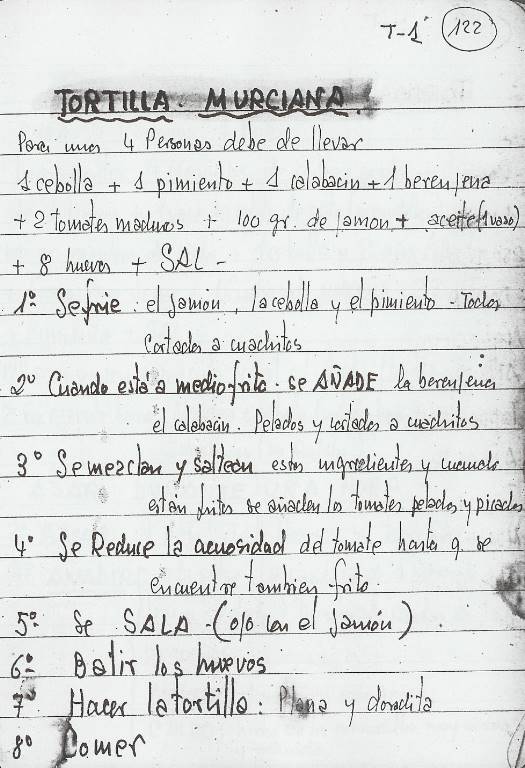 T-1 122
TORTILLA. MURCIANA.
Para unas 4 Personas debe de llevar
1 cebolla + 1 pimiento + 1 calabacin + 1 berenjena
+ 2 tomates maduros + 100 gr. de jamon + aceite (1 vaso)
+ 8 huevos + SAL -
1º Se frie: el jamón, la cebolla y el pimiento - Todos
Cortados a cuachitos
2º Cuando está a medio frito. se AÑADE la berenjena
el calabacin. Pelados y cortados a cuachitos
3º Se mezclan y saltean estos ingredientes y cuando
están fritos se añaden los tomates pelados y picados
4º Se Reduce la acuosidad del tomate hasta q. se
encuentre tambien frito.
5º Se SALA - (ojo con el jamón).
6º Batir los huevos
7º Hacer la tortilla: Plana y doradita
8º Comer